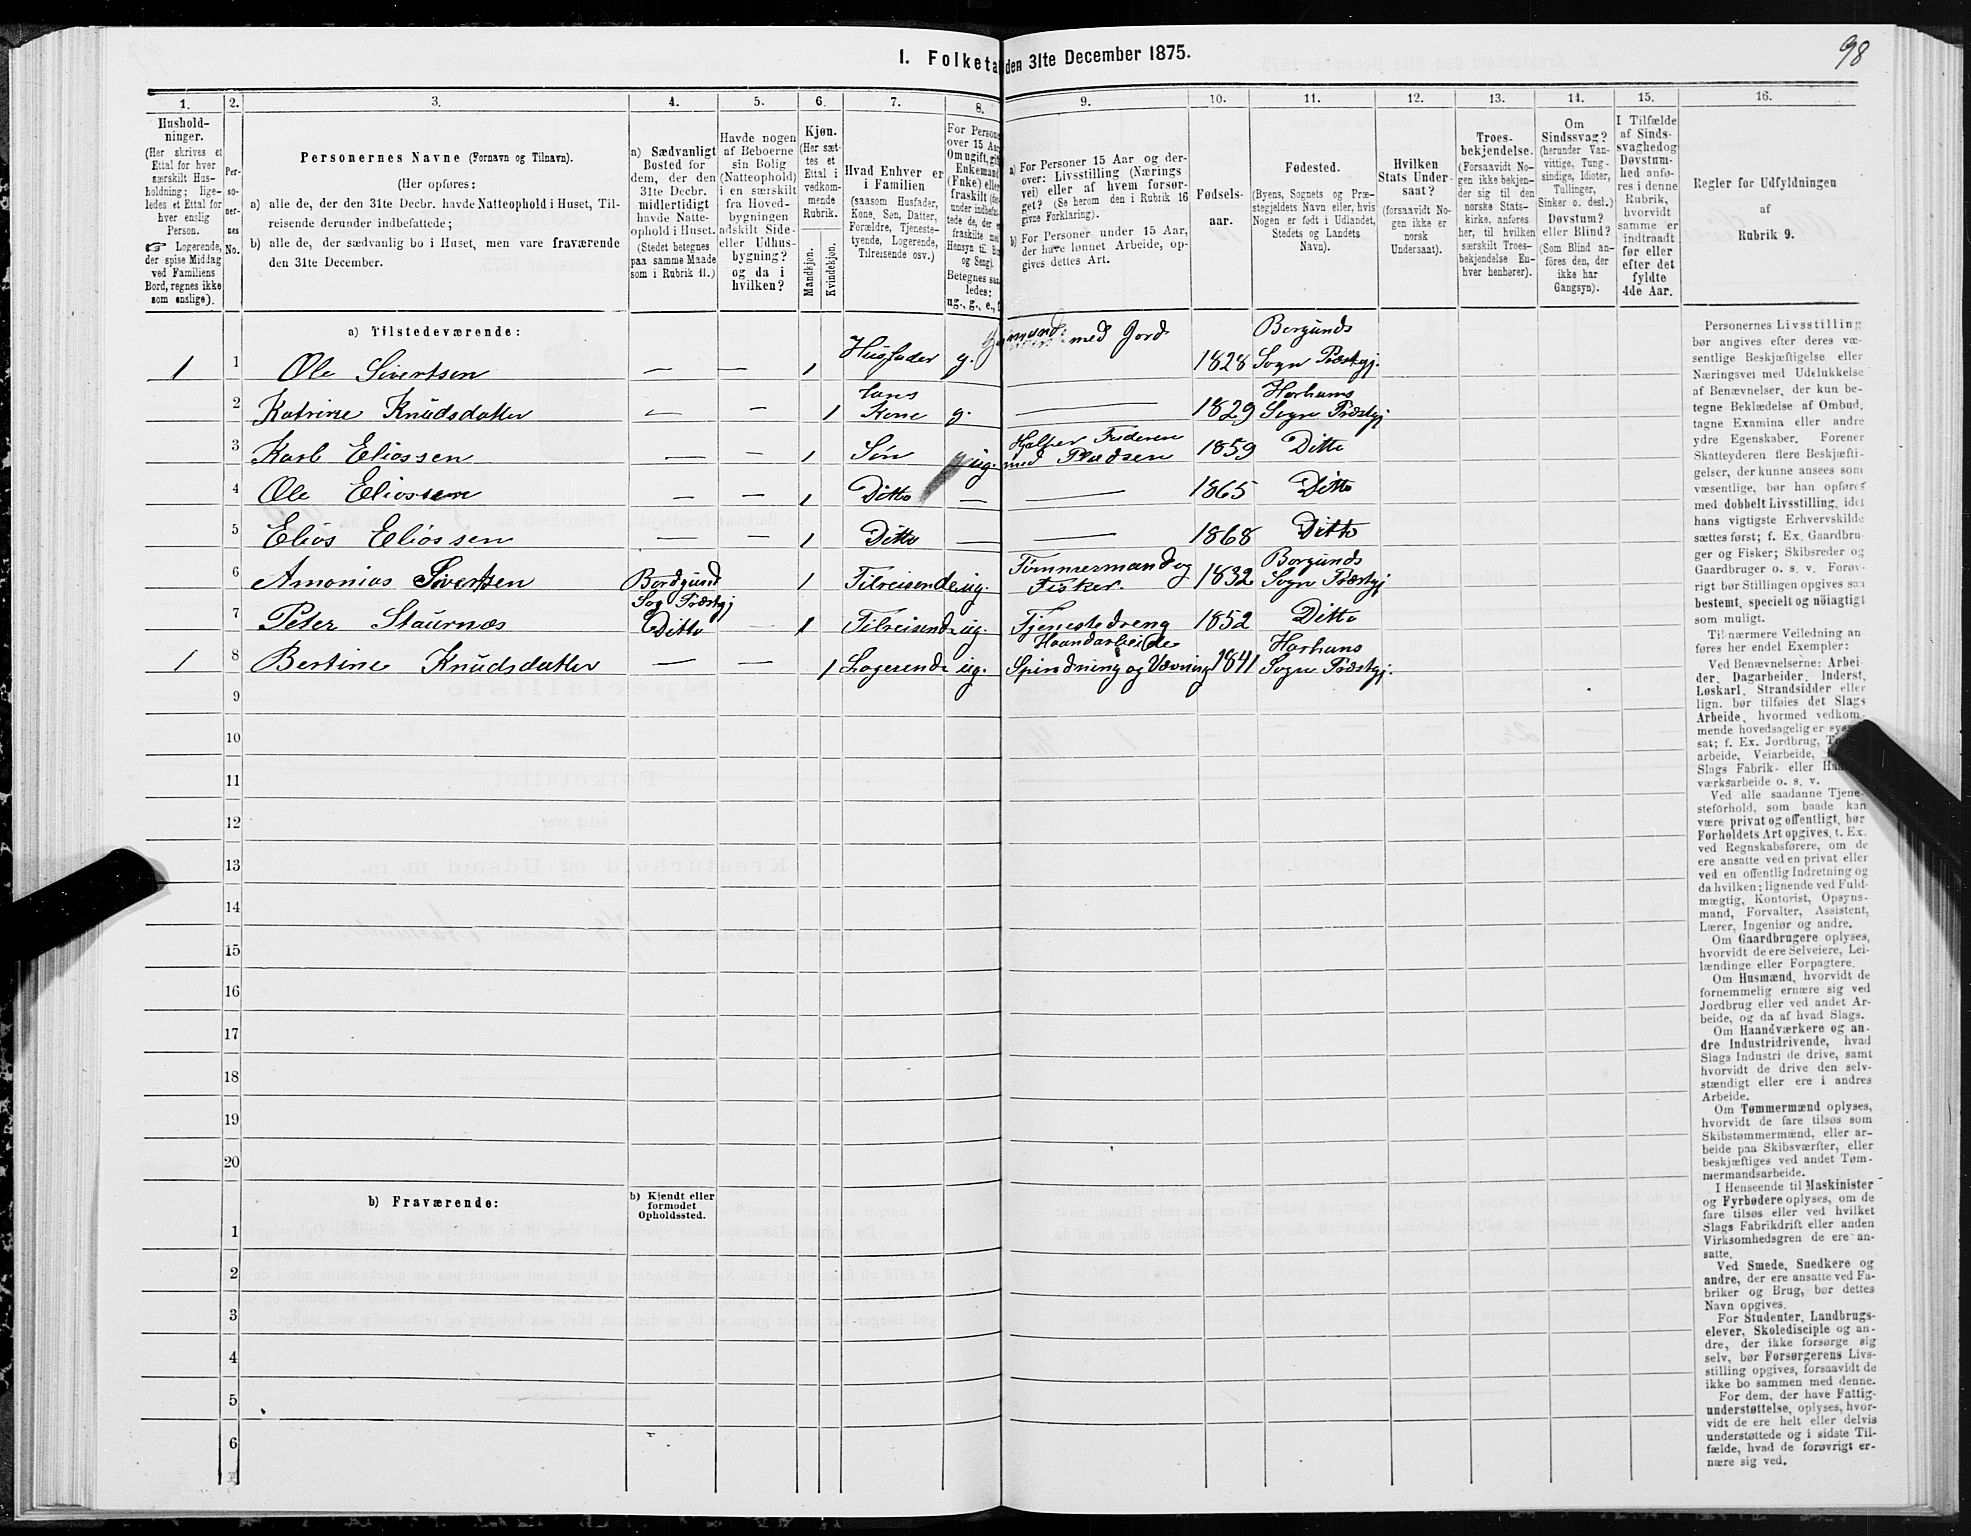 98
I. Folketa den 31te December 1875.
1. 2. 3. 4. 5. 6. 7. 8. 9. 10. 11. 12. 13. 14. 15. 16.
Hushold-
ninger.
(Her skrives et
Ettal for hver
særskilt Hus-
holdning; lige-
ledes et Ettal for
hver enslig
Person.
☞ Logerende,
der spise Middag
ved Familiens
Bord, regnes ikke
som enslige).
Per-
so-
ner-
nes
No.
Personernes Navne (Fornavn og Tilnavn).
(Her opføres:
a) alle de, der den 31te Decbr. havde Natteophold i Huset, Til-
reisende derunder indbefattede;
b) alle de, der sædvanlig bo i Huset, men vare fraværende
den 31te December.
a) Sædvanligt
Bosted for
dem, der den
31te Decbr.
midlertidigt
havde Natte-
ophold i Huset.
(Stedet betegnes
paa samme Maade
som i Rubrik 11.)
Havde nogen
af Beboerne
sin Bolig
(Natteophold)
i en særskilt
fra Hoved-
bygningen
adskilt Side-
eller Udhus-
bygning?
og da i
hvilken?
Kjøn.
(Her sæt-
tes et
Ettal i
vedkom-
mende
Rubrik.
Mandkjøn.
Kvindekjøn.
Hvad Enhver er
i Familien
(saasom Husfader,
Kone, Søn, Datter,
Forældre, Tjeneste-
tyende, Logerende,
Tilreisende osv.)
For Persone
over 15 Aar
Om ugift, gift
Enkemand
(Enke) elle
fraskilt (he
under indbefat
tede de, der e
fraskilte me
Hensyn til B
og Seng).
Betegnes saa
ledes:
ug., g., e., f
a) For Personer 15 Aar og der-
over: Livsstilling (Nærings
vei) eller af hvem forsør-
get? (Se herom den i Rubrik 16
givne Forklaring).
b) For Personer under 15 Aar,
der have lønnet Arbeide, op-
gives dettes Art.
Fødsels-
aar.
Fødested.
(Byens, Sognets og Præ-
stegjeldets Navn eller, hvis
Nogen er født i Udlandet,
Stedets og Landets
Navn).
Hvilken
Stats Under-
saat?
(forsaavidt No-
gen ikke er
norsk
Undersaat).
Troes-
bekjendelse.
(Forsaavidt No-
gen ikke bekjen-
der sig til den
norske Stats-
kirke, anføres
her, til hvilken
særskilt Troes-
bekjendelse En-
hver henhører).
Om
Sindssvag?
(herunder Van-
vittige, Tung-
sindige, Idioter,
Tullinger,
Sinker o. desl.)
Døvstum?
eller Blind?
(Som Blind an-
føres den, der
ikke har
Gangsyn).
I Tilfælde
af Sinds-
svaghed og
Døvstum-
hed anfø-
res i denne
Rubrik,
hvorvidt
samme er
indtraadt
før eller
efter det
fyldte
4de Aar.
Regler for Udfyldningen
af
Rubrik 9.
a) Tilstedeværende:
1 1 Ole Sivertsen — — 1 Husfader g. med Jord 1828 Borgunds Sogn Præstgj.
2 Katrine Knudsdatter — — 1 hans Kone g. — 1829 Harhams Sogn Præstgj
3 Karl Eliassen — — 1 Søn ug. Hjelper Faderen med Pladsen 1859 Ditto
4 Ole Eliassen — — 1 Ditto — — 1865 Ditto
5 Elias Eliassen — — 1 Ditto — — 1868 Ditto
6 Amonias Sivertsen Bordgund Sog Præstgj 1 Tilreisende ug. Tømmermand og Fisker. 1832 Borgunds Sogn Præstgj
7 Peter Staurnæs Ditto — 1 Tilreisend ug. Tjenestedreng 1852 Ditto
1 8 Bertine Knudsdatter — — 1 Logerend ug. Haandarbeide Spindning og Vævning 1841 Harhams Sogn Præstgj.
9
10
11
12
13
14
15
16
17
18
19
20
b) Fraværende:
b) Kjendt eller
formodet
Opholdssted.
1
2
3
4
5
6
Personernes Livsstilling
bør angives efter deres væ-
sentlige Beskjæftigelse eller
Næringsvei med Udelukkelse
af Benævnelser, der kun be-
tegne Beklædelse af Ombud,
tagne Examina eller andre
ydre Egenskaber. Forener
Skatteyderen flere Beskjæfti-
gelser, der kunne ansees som
væsentlige, bør han opføres
med dobbelt Livsstilling, idet
hans vigtigste Erhvervskilde
sættes først; f. Ex. Gaardbru-
ger og Fisker; Skibsreder og
Gaardbruger o. s. v. Forøv-
rigt bør Stillingen opgives saa
bestemt, specielt og nøiagtigt
som muligt.
Til nærmere Veiledning an
føres her endel Exempler:
Ved Benævnelserne: Arbei-
der, Dagarbeider, Inderst,
Løskarl, Strandsidder eller
lign. bør tilføies det Slags
Arbeide, hvormed vedkom-
mende hovedsagelig er syssel-
sat; f. Ex. Jordbrug,
arbeide, Veiarbeide,
Slags Fabrik- eller
værksarbeide o. s. v.
Ved alle saadanne Tjene-
steforhold, som baade kan
være privat og offentligt, bør
Forholdets Art opgives, t. Ex.
ved Regnskabsførere, om de
ere ansatte ved en privat eller
ved en offentlig Indretning og
da hvilken; lignende ved Fuld-
mægtig, Kontorist, Opsyns-
mand, Forvalter, Assistent,
Lærer, Ingeniør og andre.
Om Gaardbrugere oplyses,
hvorvidt de ere Selveiere, Lei-
lændinge eller Forpagtere.
Om Husmænd, hvorvidt de
fornemmelig ernære sig ved
Jordbrug eller ved andet Ar-
beide, og da af hvad Slags.
Om Haandværkere og an-
dre Industridrivende, hvad
Slags Industri de drive, samt
hvorvidt de drive den selv-
stændigt eller ere i andres
Arbeide.
Om Tømmermænd oplyses,
hvorvidt de fare tilsøs som
Skibstømmermænd, eller ar-
beide paa Skibsværfter, eller
beskjæftiges ved andet Tøm-
mermandsarbeide.
I Henseende til Maskinister
og Fyrbødere oplyses, om de
fare tilsøs eller ved hvilket
Slags Fabrikdrift eller anden
Virksomhedsgren de ere an-
satte.
Ved Smede, Snedkere og
andre, der ere ansatte ved Fa-
briker og Brug, bør dettes
Navn opgives.
For Studenter, Landbrugs-
elever, Skoledisciple og an-
dre, der ikke forsørge sig
selv, bør Forsørgerens Livs-
stilling opgives, forsaavidt de
ikke bo sammen med denne.
For dem, der have Fattig-
understøttelse, oplyses, hvor-
vidt de ere helt eller delvis
understøttede og i sidste Til-
fælde, hvad de forøvrigt er-
nære sig ved.